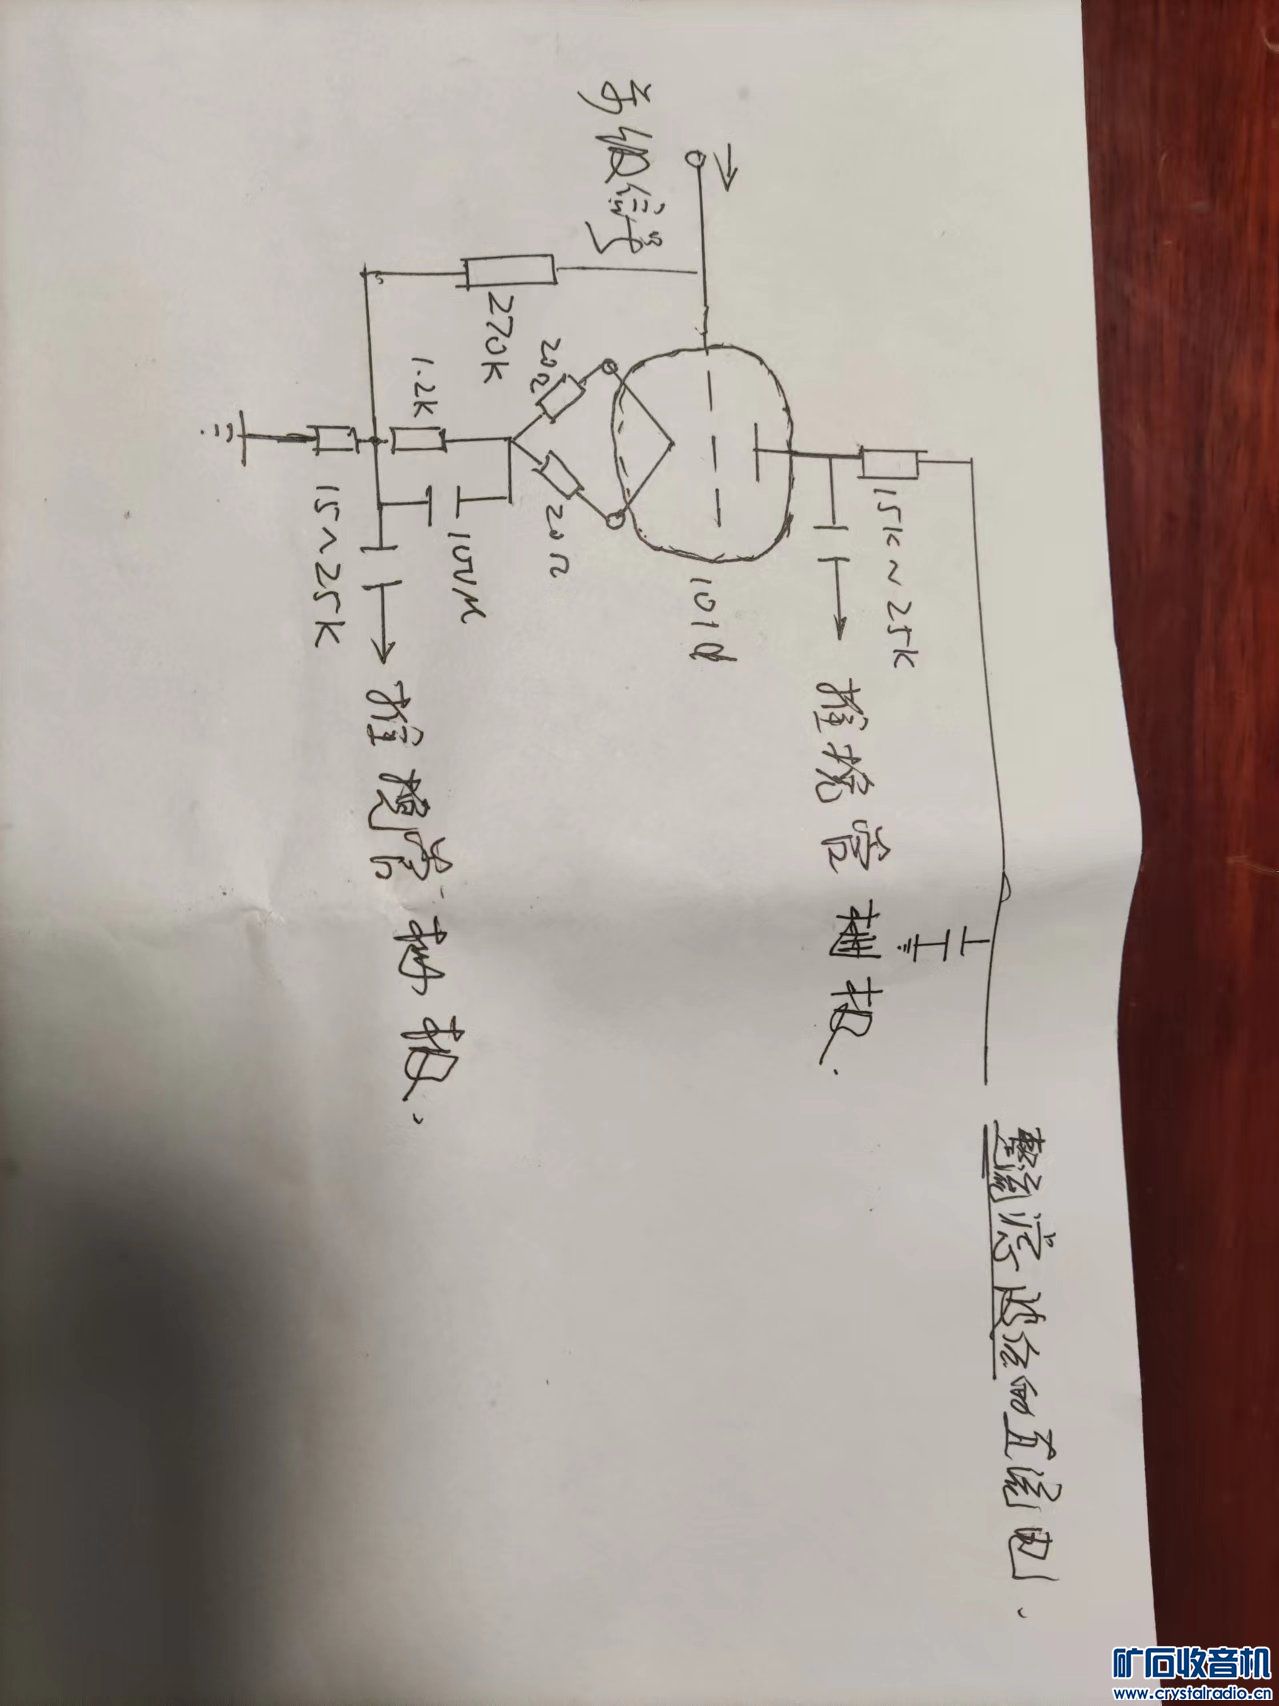 整流滤波后的直流电.
15K~25K
推挽管栅极.
101d
前级信号
270K
20Ω
20Ω
1.2K
100μ
15~25K
推挽管栅极.
矿石收音机
www.crystalradio.cn